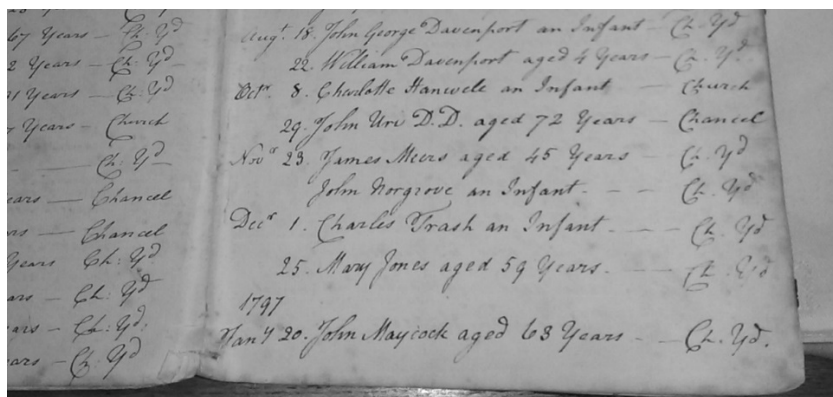 67 Years – Ch: Yd
2 Years – Ch: Yd
1 Years – Ch: Yd
Years – Church
– Ch: Yd
ears – Chancel
rs – Chancel
Years Ch: Yd
ars – Ch: Yd
ars – Ch: Yd:
ars – Ch: Yd
Augt. 18. John George Davenport an Infant – Ch. Yd
22. William Davenport aged 4 Years – Ch. Yd.
Octr. 8. Charlotte Hanwell an Infant – Church
29. John Uri D.D. aged 72 Years – Chancel
Novr 23. James Meers aged 45 Years – Ch. Yd
John Norgrove an Infant. – – Ch. Yd
Decr 1. Charles Trash an Infant. – – Ch. Yd
25. Mary Jones aged 59 Years. – – Ch. Yd
1797
Jany 20. John Maycock aged 63 Years – – Ch. Yd.